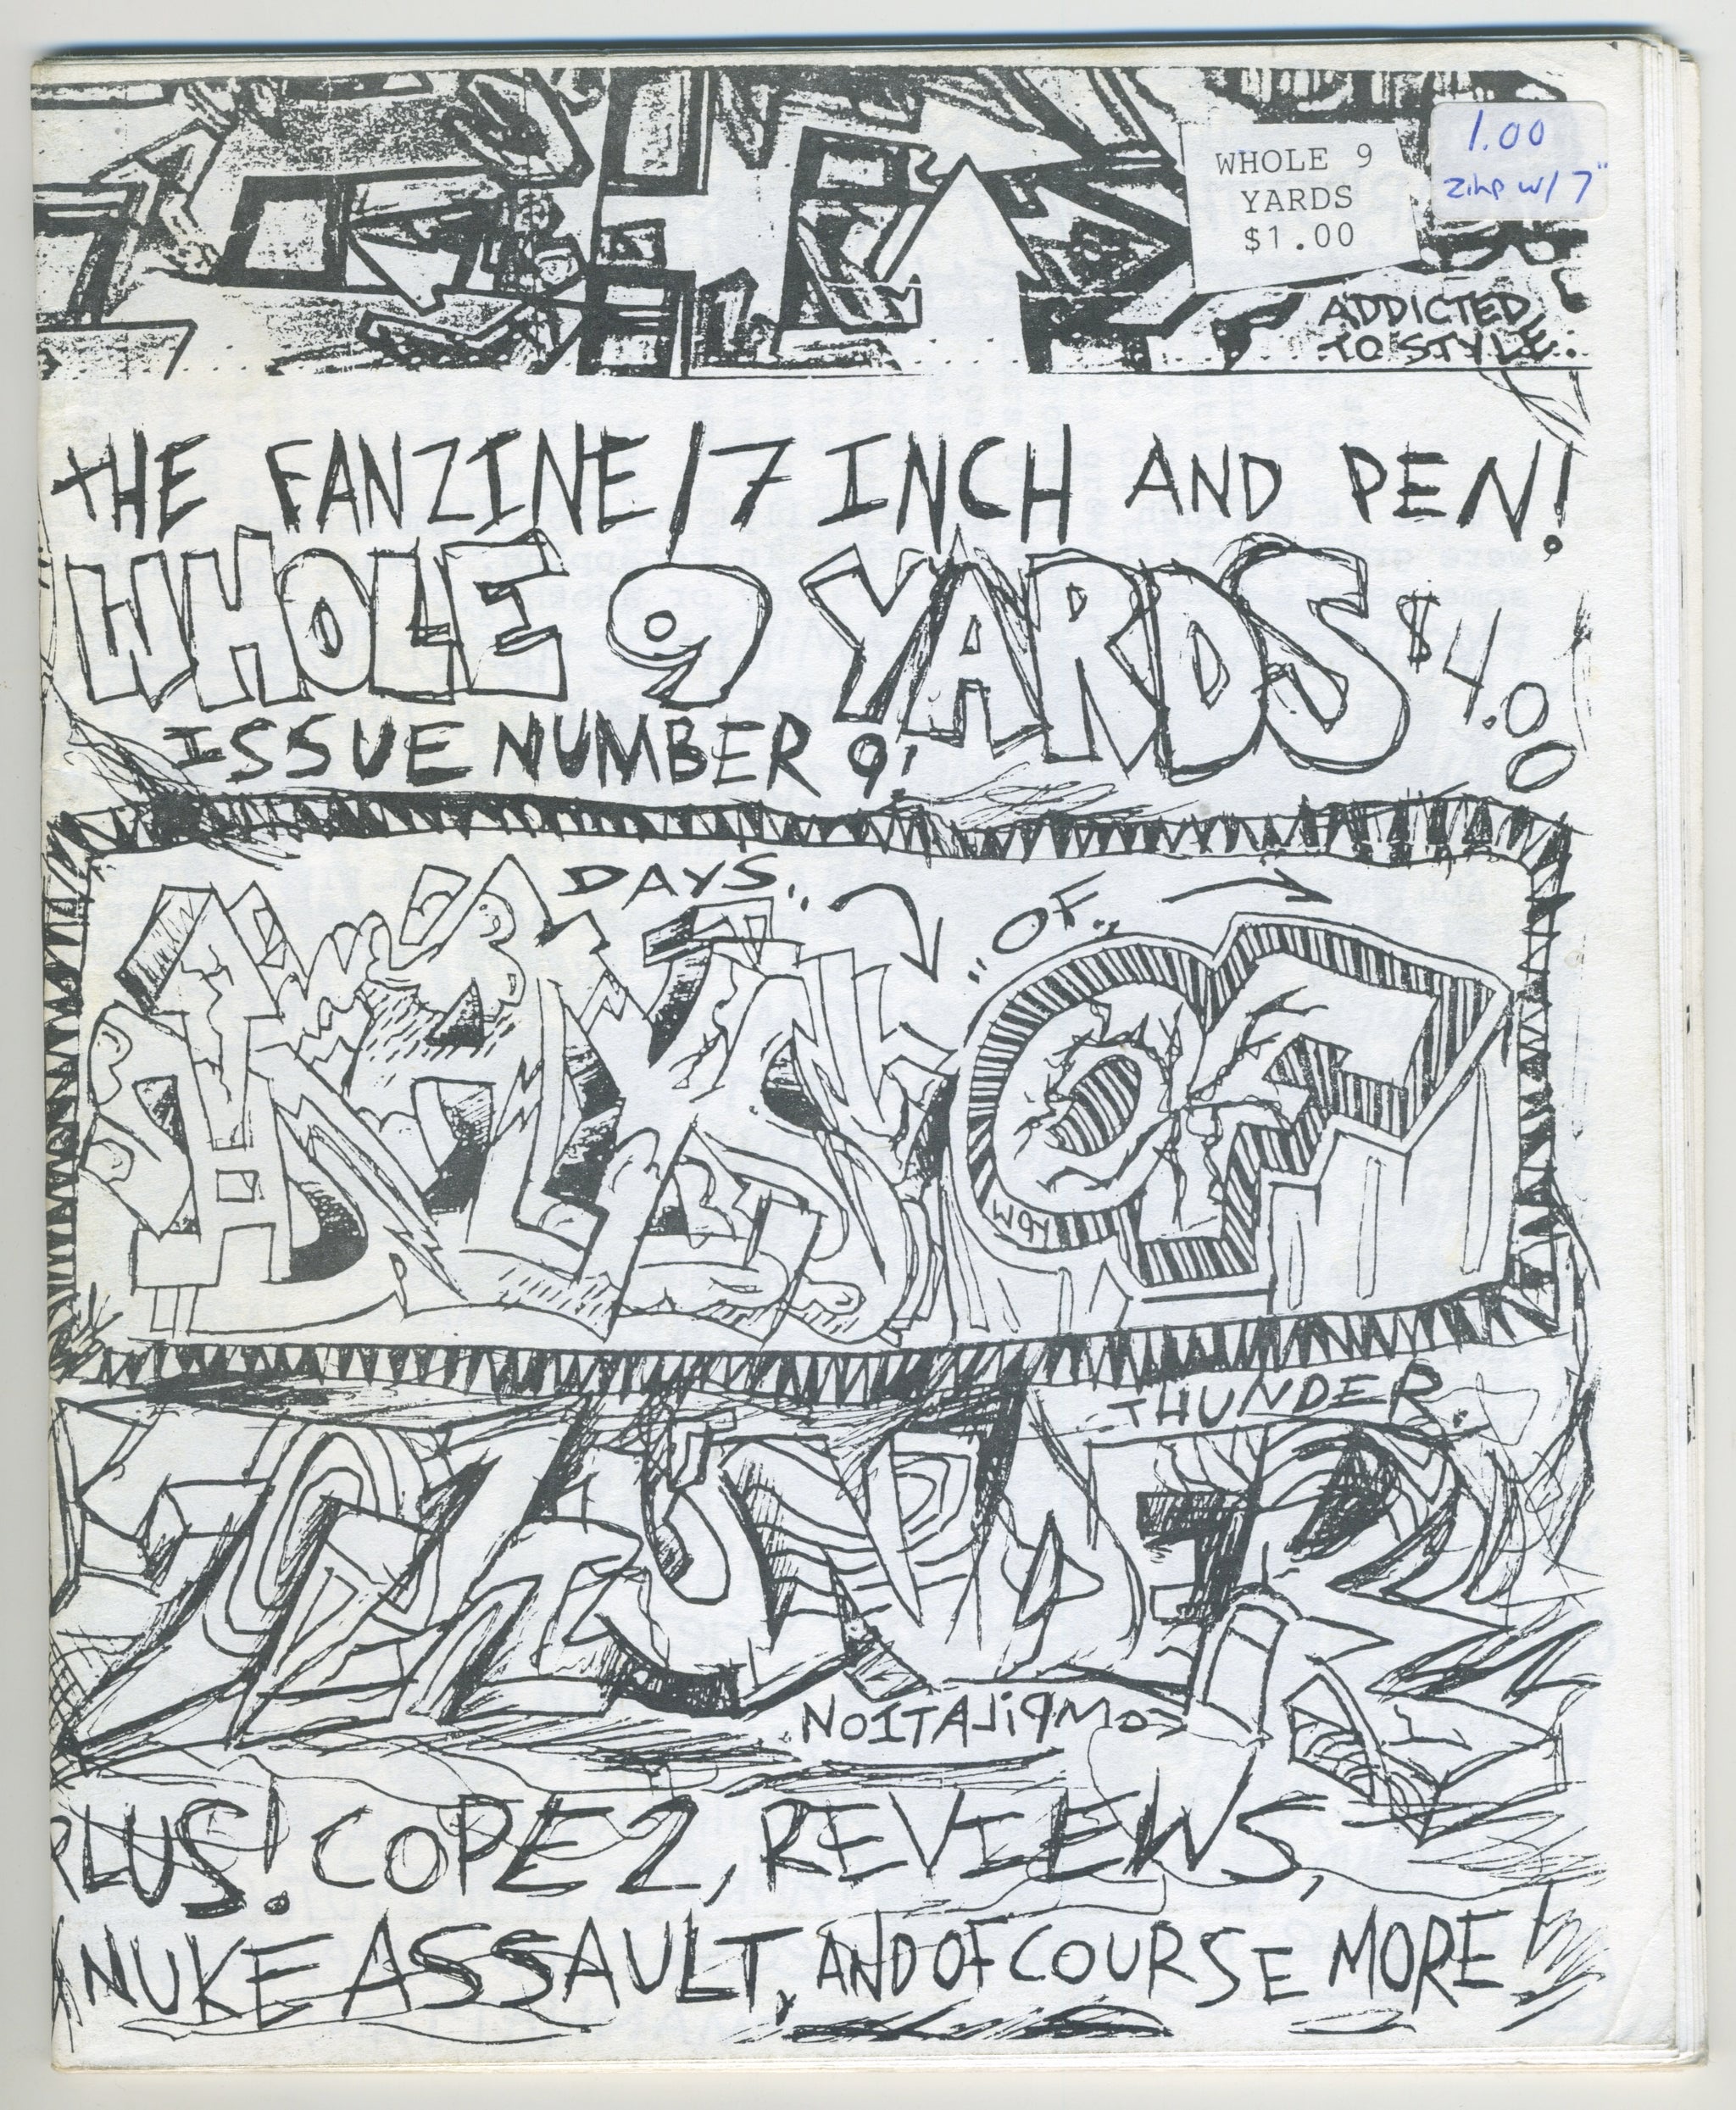 WHOLE 9
YARDS
$1.00
1.00
zine w/ 7"
ADDICTED
TO STYLE.
THE FANZINE/7 INCH AND PEN!
WHOLE 9 YARDS $4.00
ISSUE NUMBER 9!
DAYS.. "OF"
DAYS OF
THUNDER.
THUNDER
COMPiLATION.
PLUS! COPE 2, REVIEWS,
NUKE ASSAULT, AND OF COURSE MORE!